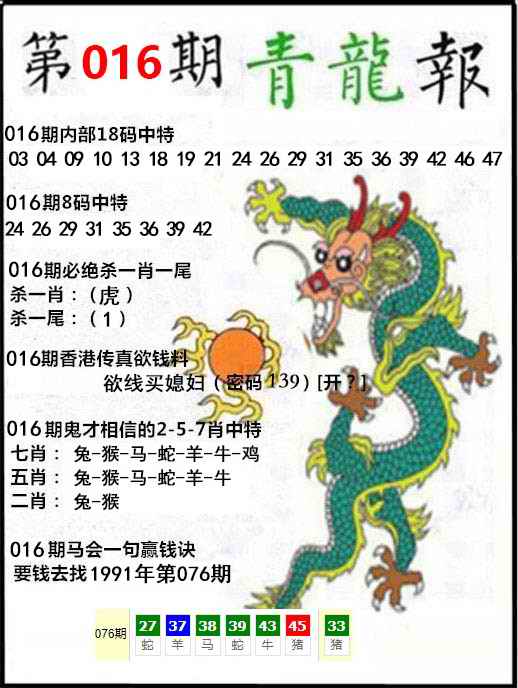 第016期青龍報
016期内部18码中特
03 04 09 10 13 18 19 21 24 26 29 31 35 36 39 42 46 47
016期8码中特
24 26 29 31 35 36 39 42
016期必绝杀一肖一尾
杀一肖：（虎）
杀一尾：（1）
016期香港传真欲钱料
欲线买媳妇（密码139）[开？]
016期鬼才相信的2-5-7肖中特
七肖： 兔-猴-马-蛇-羊-牛-鸡
五肖： 兔-猴-马-蛇-羊-牛
二肖： 兔-猴
016期马会一句赢钱诀
要钱去找1991年第076期
076期 27 37 38 39 43 45 33
蛇 羊 马 蛇 牛 猪 猪